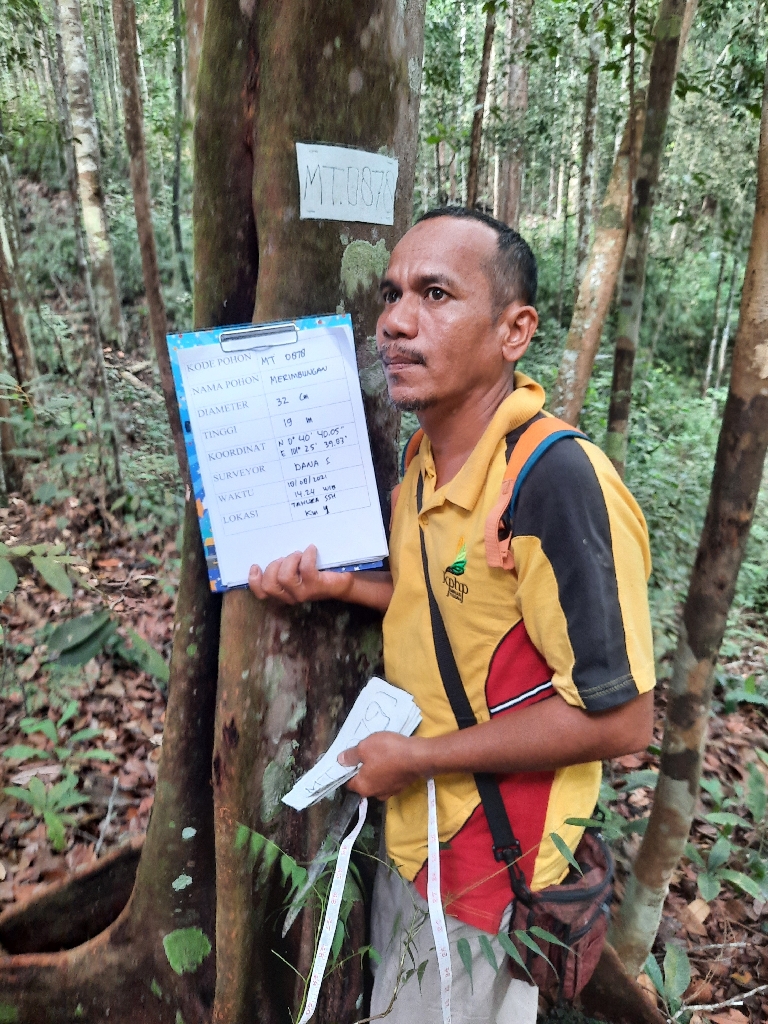 MT.0878
KODE POHON MT 0878
NAMA POHON MERIMBUNGAN
DIAMETER 32 Cm
TINGGI 19 m
KOORDINAT N 0° 40' 40.05"
E 101° 25' 39.03"
SURVEYOR DANA S
WAKTU 18/08/2021
14.24 WIB
LOKASI TAHURA SSH
KM 4
kphp
MT